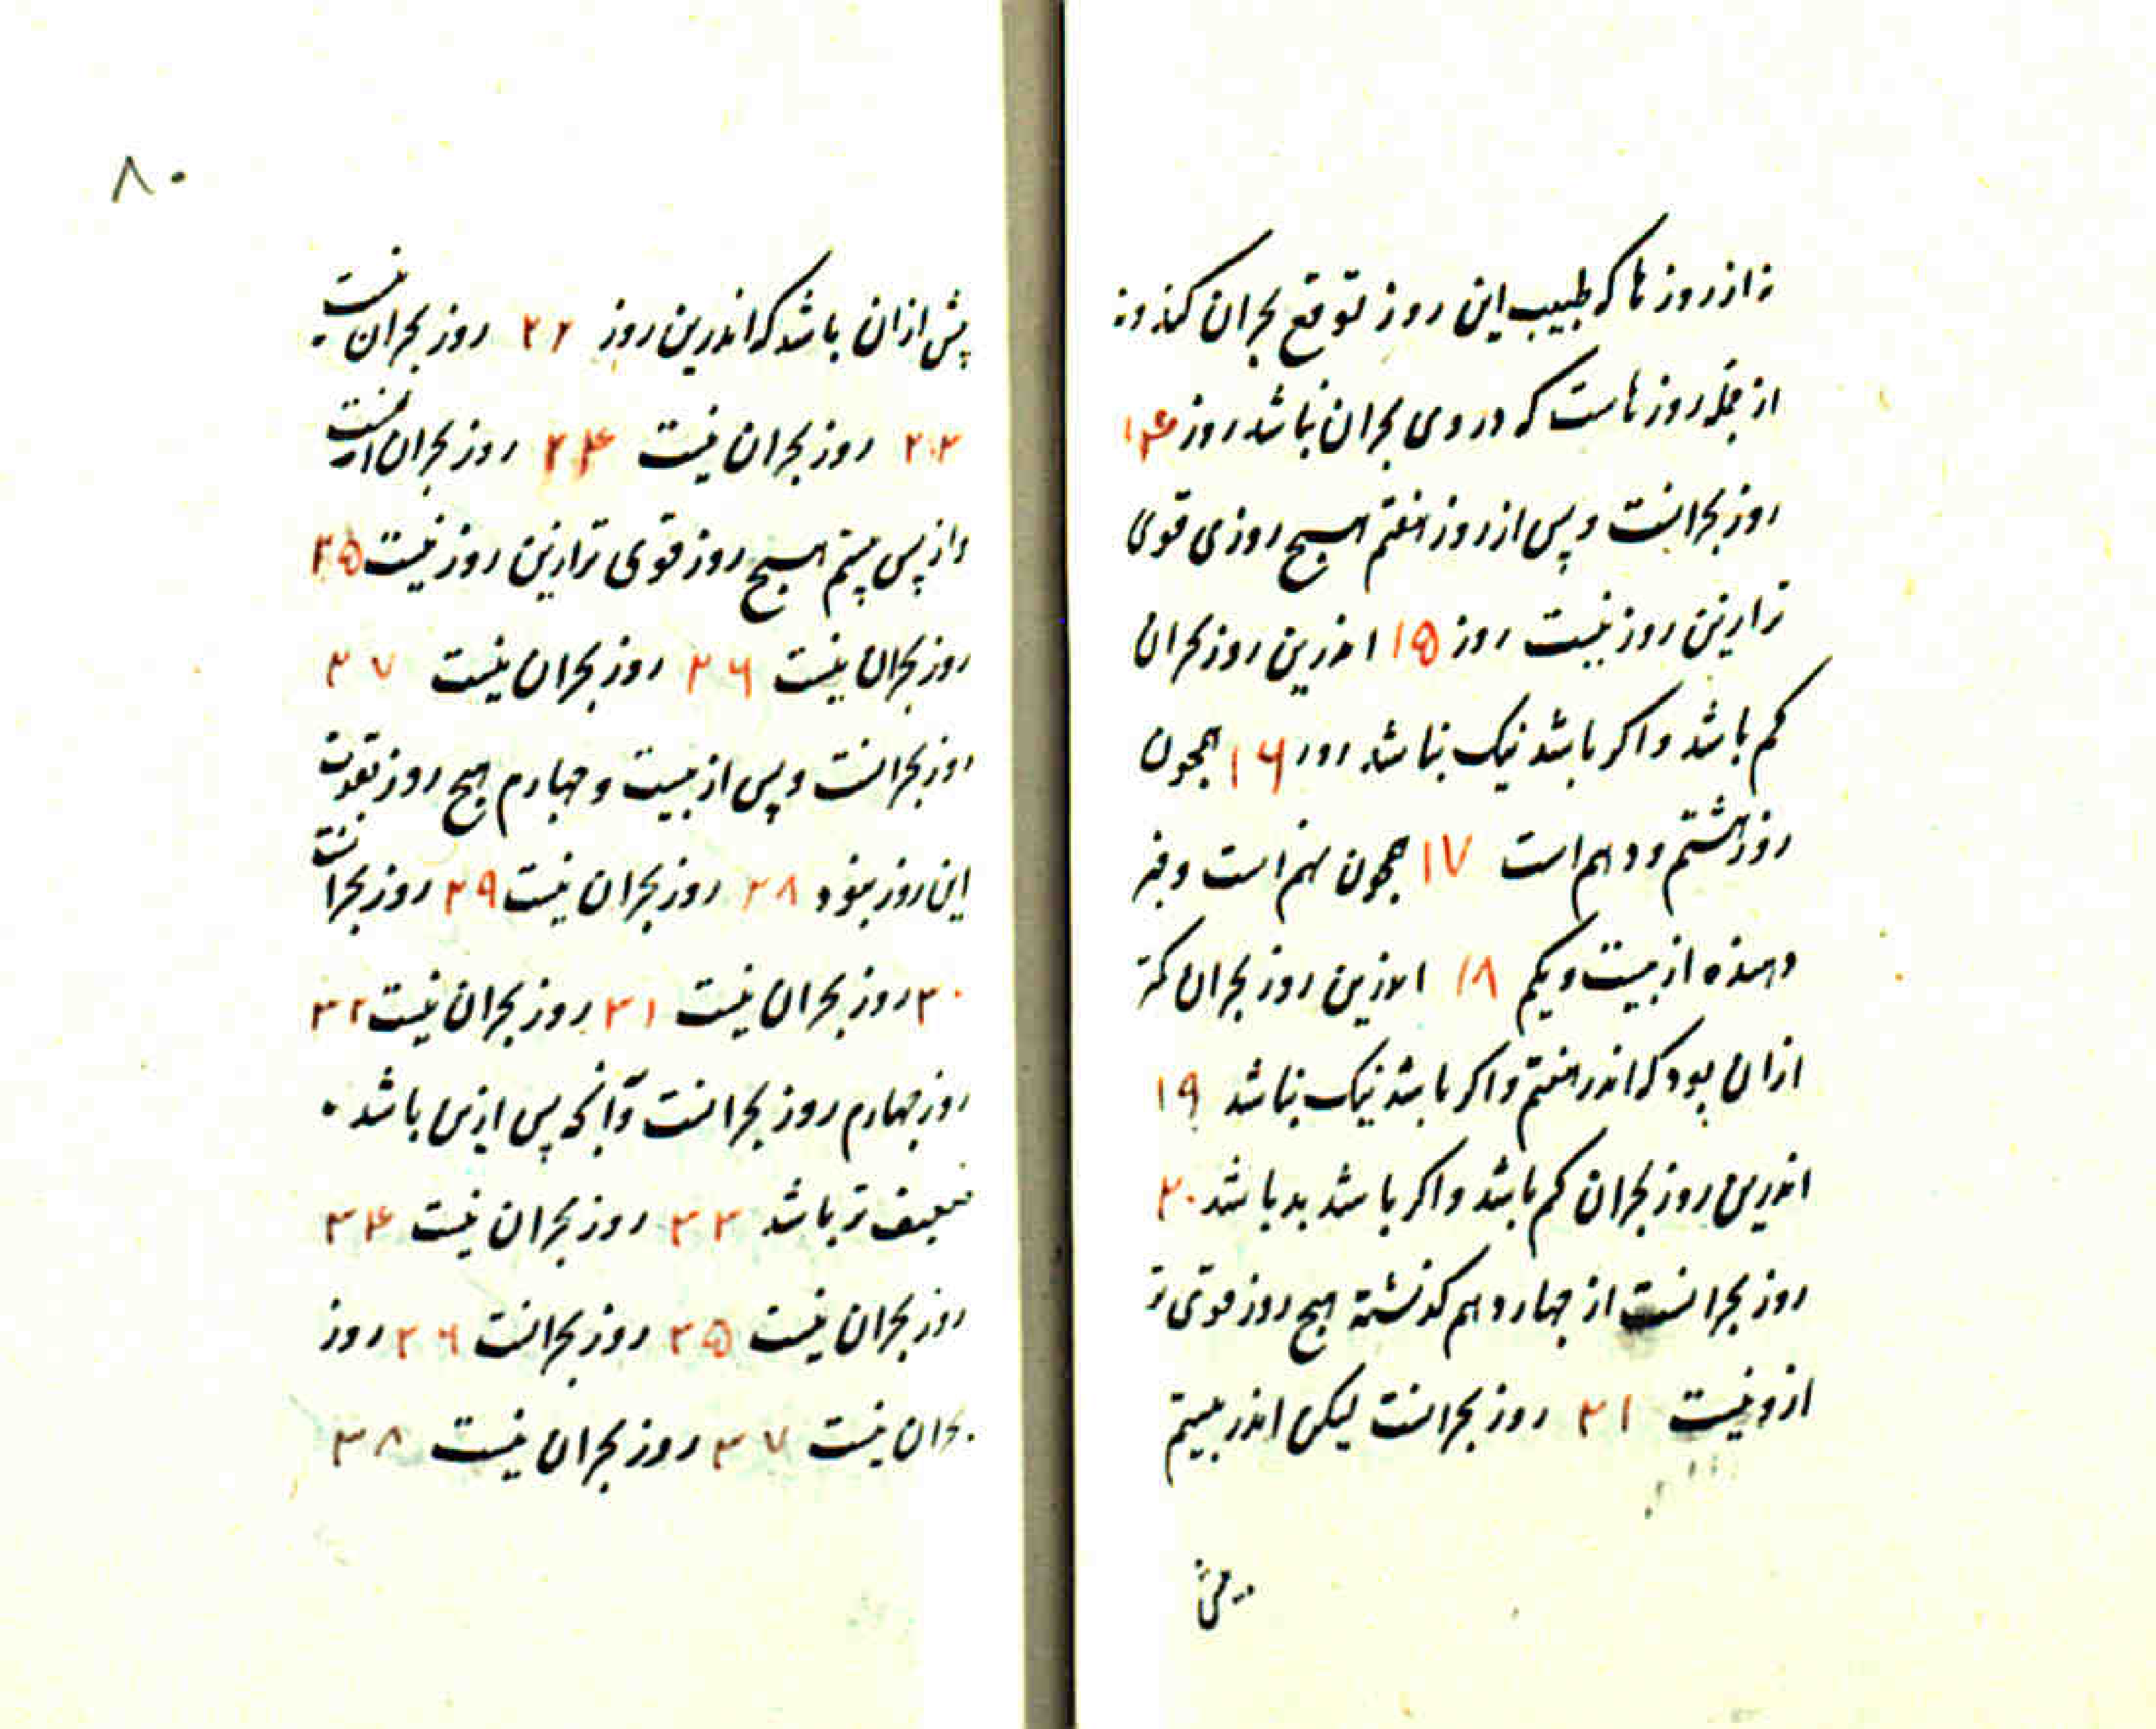 نه از روزها که طبیب این روز توقع بحران کند ونه
از جمله روزهاست که در وی بحران نباشد روز ۱۴
روز بحرانست و پس از روز هفتم هیچ روزی قوی
تر ازین روز نیست روز ۱۵ اندرین روز بحران
کم باشد و اکر باشد نیک نباشد روز ۱۶ همچون
روز هشتم و دهم است ۱۷ همچون نهم است
از بیست و یکم ۱۸ اندرین روز بحران کمتر
ازان بود که اندر هفتم و اکر باشد نیک نباشد ۱۹
اندرین روز بحران کم باشد و اکر باشد بد باشد ۲۰
روز بحرانست از چهاردهم کذشته هیچ روز قوی تر
ازو نیست ۲۱ روز بحرانست لیکن اندر بیستم
۸۰
پیش ازان باشد که اندرین روز ۲۲ روز بحران نیست
۲۳ روز بحران نیست ۲۴ روز بحرانست
و از پس بیستم هیچ روز قوی تر ازین روز نیست ۲۵
روز بحران نیست ۲۶ روز بحران نیست ۲۷
روز بحرانست و پس از بیست و چهارم هیچ روز بقوت
این روز نبود ۲۸ روز بحران نیست ۲۹ روز بحران نیست
۳۰ روز بحران نیست ۳۱ روز بحران نیست ۳۲
روز چهارم روز بحرانست و آنچه پس ازین باشد
ضعیف تر باشد ۳۳ روز بحران نیست ۳۴
روز بحران نیست ۳۵ روز بحرانست ۳۶ روز
بحران نیست ۳۷ روز بحران نیست ۳۸